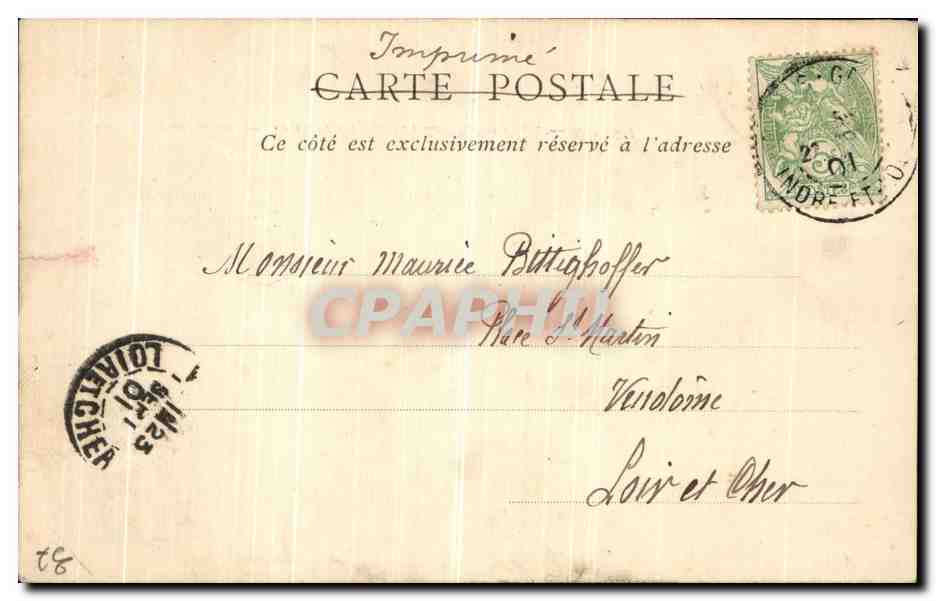 Imprimé
CARTE POSTALE
Ce côté est exclusivement réservé à l'adresse
INDRE-ET-
01
Monsieur Maurice Bittighoffer
Place St Martin
Vendôme
Loir et Cher
CPAPHIL
LOIR ET CHER
23
01